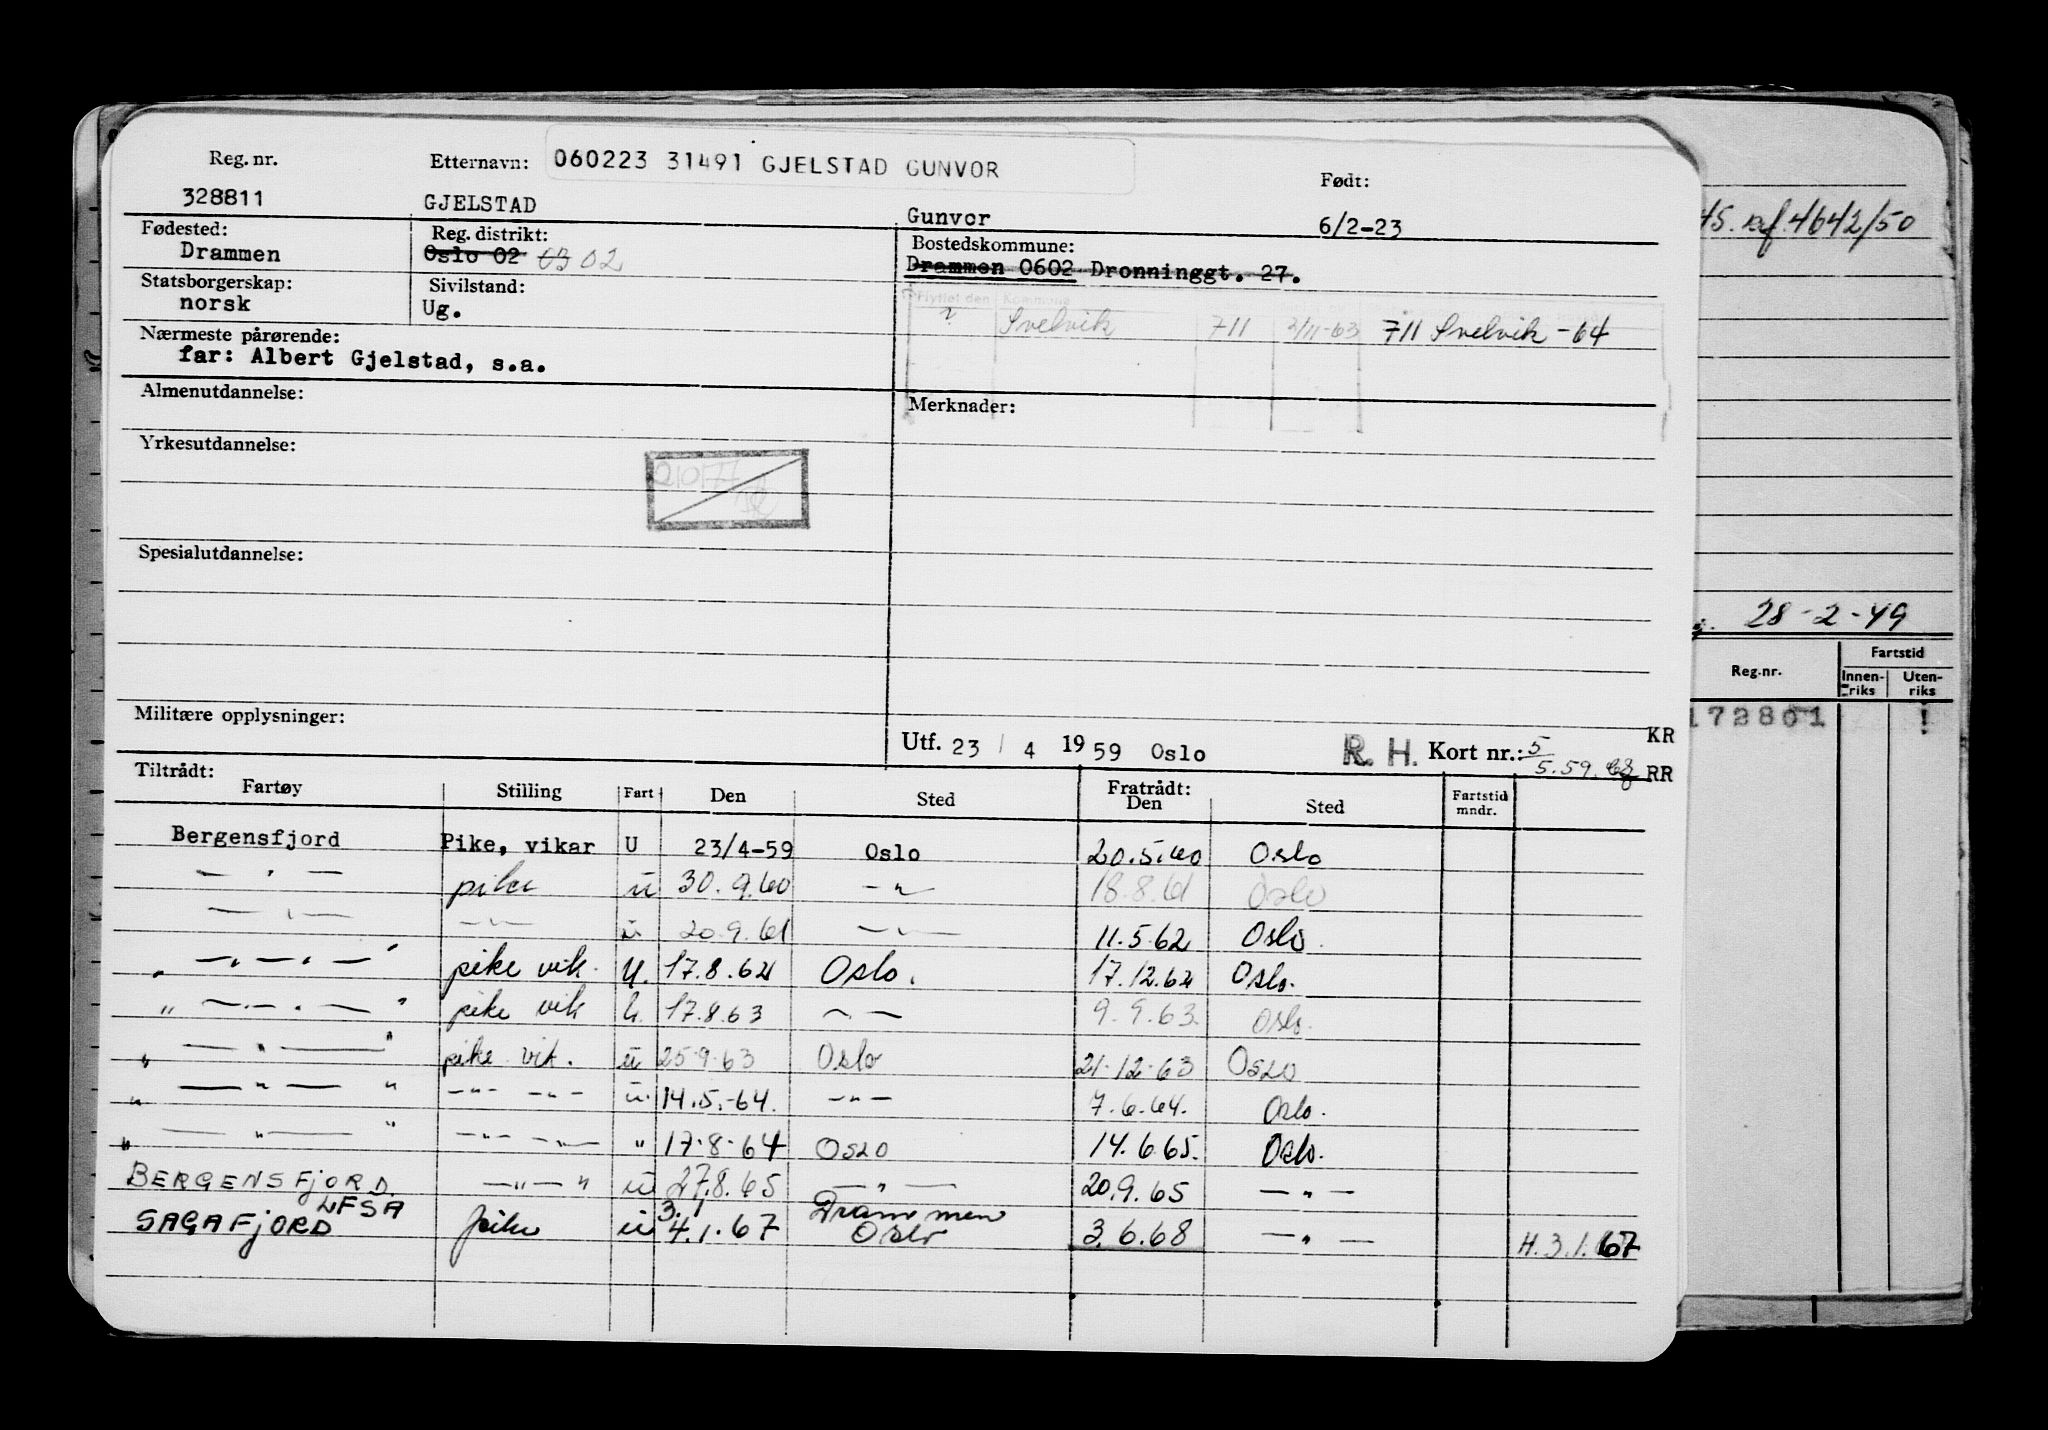 Reg. nr. Etternavn: 060223 31491 GJELSTAD GUNVOR Født:
328811 GJELSTAD Gunvor 6/2-23
Fødested: Reg. distrikt: Bostedskommune:
Drammen Oslo 02 03 02 Drammen 0602 Dronninggt. 27.
Statsborgerskap: Sivilstand: Flyttet den Kommune
norsk Ug. Svelvik 711 2/11-63 711 Svelvik -64
Nærmeste pårørende:
far: Albert Gjelstad, s.a.
Almenutdannelse: Merknader:
Yrkesutdannelse:
Spesialutdannelse:
Militære opplysninger:
Utf. 23 / 4 19 59 Oslo R. H. Kort nr.: 5 KR
5.59. RR
Tiltrådt: Fratrådt:
Fartøy Stilling Fart Den Sted Den Sted Fartstid mndr.
Bergensfjord Pike, vikar U 23/4-59 Oslo 20.5.60 Oslo
— " — pike u 30.9.60 — " — 18.8.61 Oslo
— " — — " — u 20.9.61 — " — 11.5.62 Oslo.
" — " — " — " pike vik. U. 17.8.62 Oslo. 17.12.62 Oslo.
" — " — " — " pike vik U. 17.8.63 — " — 9.9.63. Oslo.
" — " — " pike vik. u 25.9.63 Oslo 21.12.63 Oslo
" — " — " — " — — " — u. 14.5.-64. — " — 7.6.64. Oslo.
" — " — " — " — — " — " 17.8.64 Oslo 14.6.65. Oslo.
BERGENSFJORD — " — " u 27.8.65 — " — 20.9.65 — " —
LFSA 3. Drammen
SAGAFJORD pike u 4.1.67 Oslo 3.6.68 — " — H. 3.1.67
45. 4642/50
28-2-49
Reg.nr. Fartstid
Innen-riks Uten-riks
172801 1